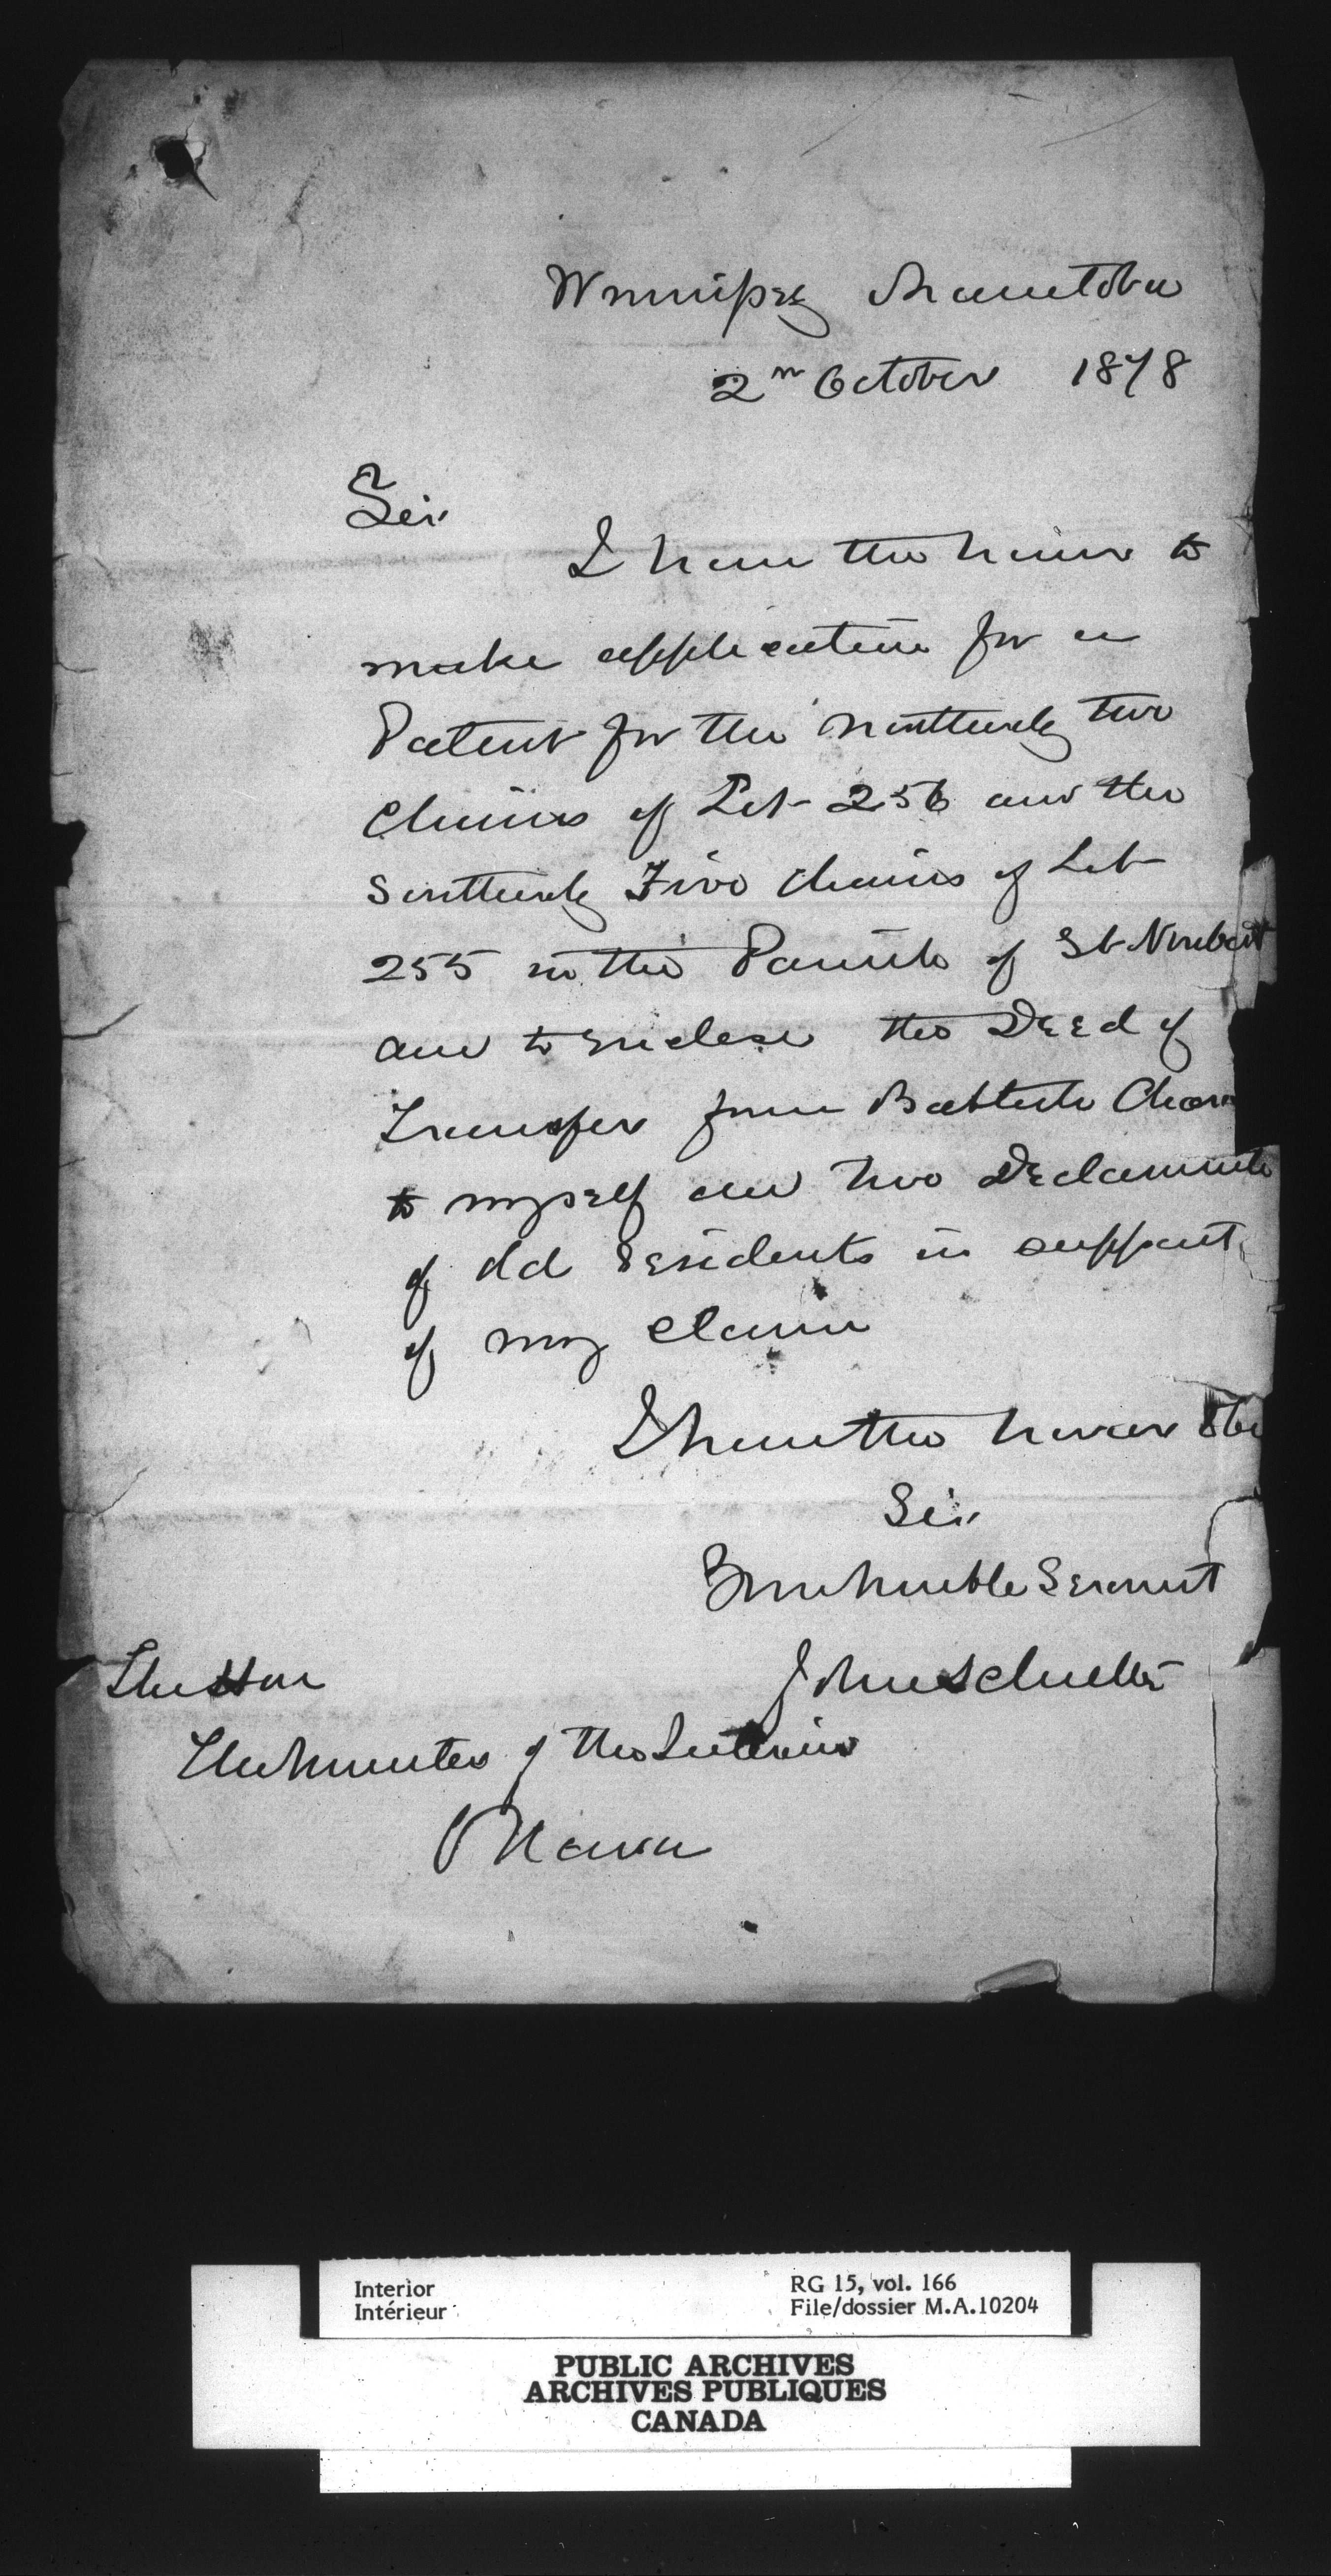 Winnipeg Manitoba
2n October 1878
Sir
I have the honor to
make application for a
Patent for the northerly two
chains of Lot 256 and the
Southerly Five chains of Lot
255 in the Parish of St Norbert
and to enclose the Deed of
Transfer from Babtiste
to myself and two Declarments
of old residents in support
of my claim
I have the honor to be
Sir
Your humble Servant
John Schultz
The Hon
The Minister of the Interior
Ottawa
Interior
Intérieur
RG 15, vol. 166
File/dossier M.A.10204
PUBLIC ARCHIVES
ARCHIVES PUBLIQUES
CANADA